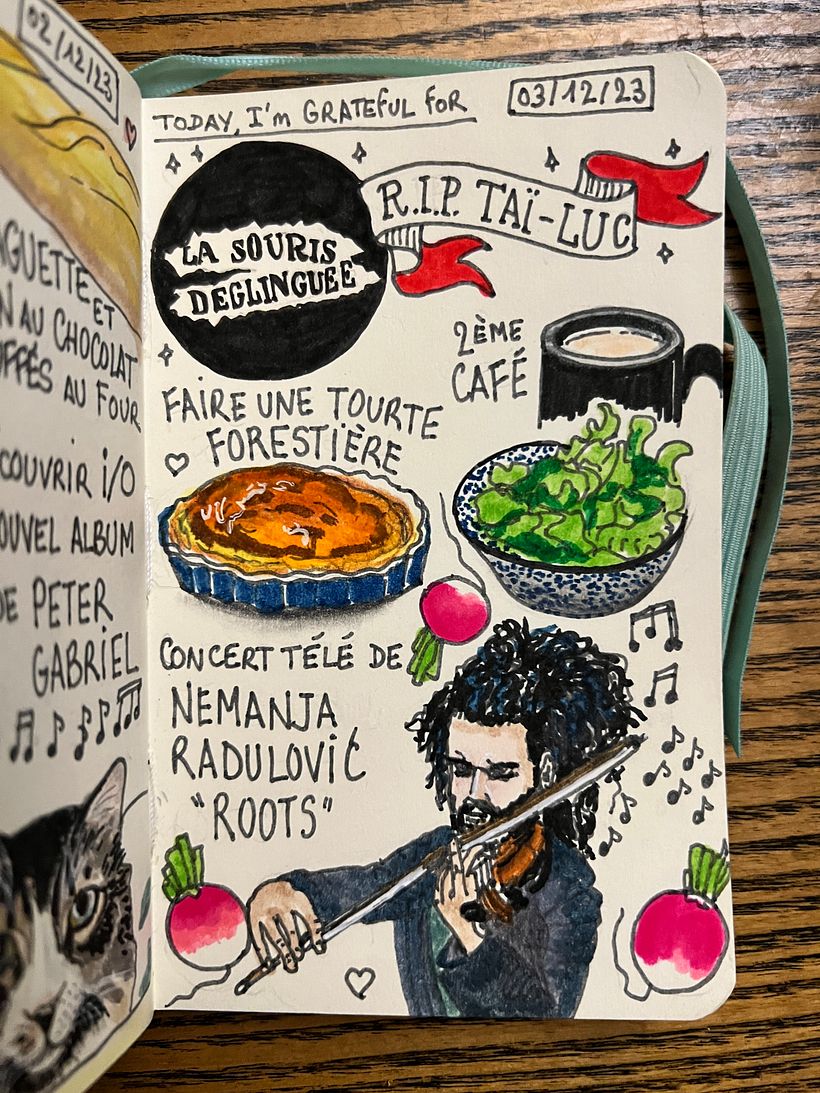 02/12/23
ET
AU CHOCOLAT
AU FOUR
i/O
ALBUM
DE PETER
GABRIEL
TODAY, I'm GRATEFUL FOR
03/12/23
LA SOURIS
DEGLINGUEE
R.I.P. TAÏ-LUC
2ÈME
CAFÉ
FAIRE UNE TOURTE
FORESTIÈRE
CONCERT TÉLÉ DE
NEMANJA
RADULOVIĆ
"ROOTS"